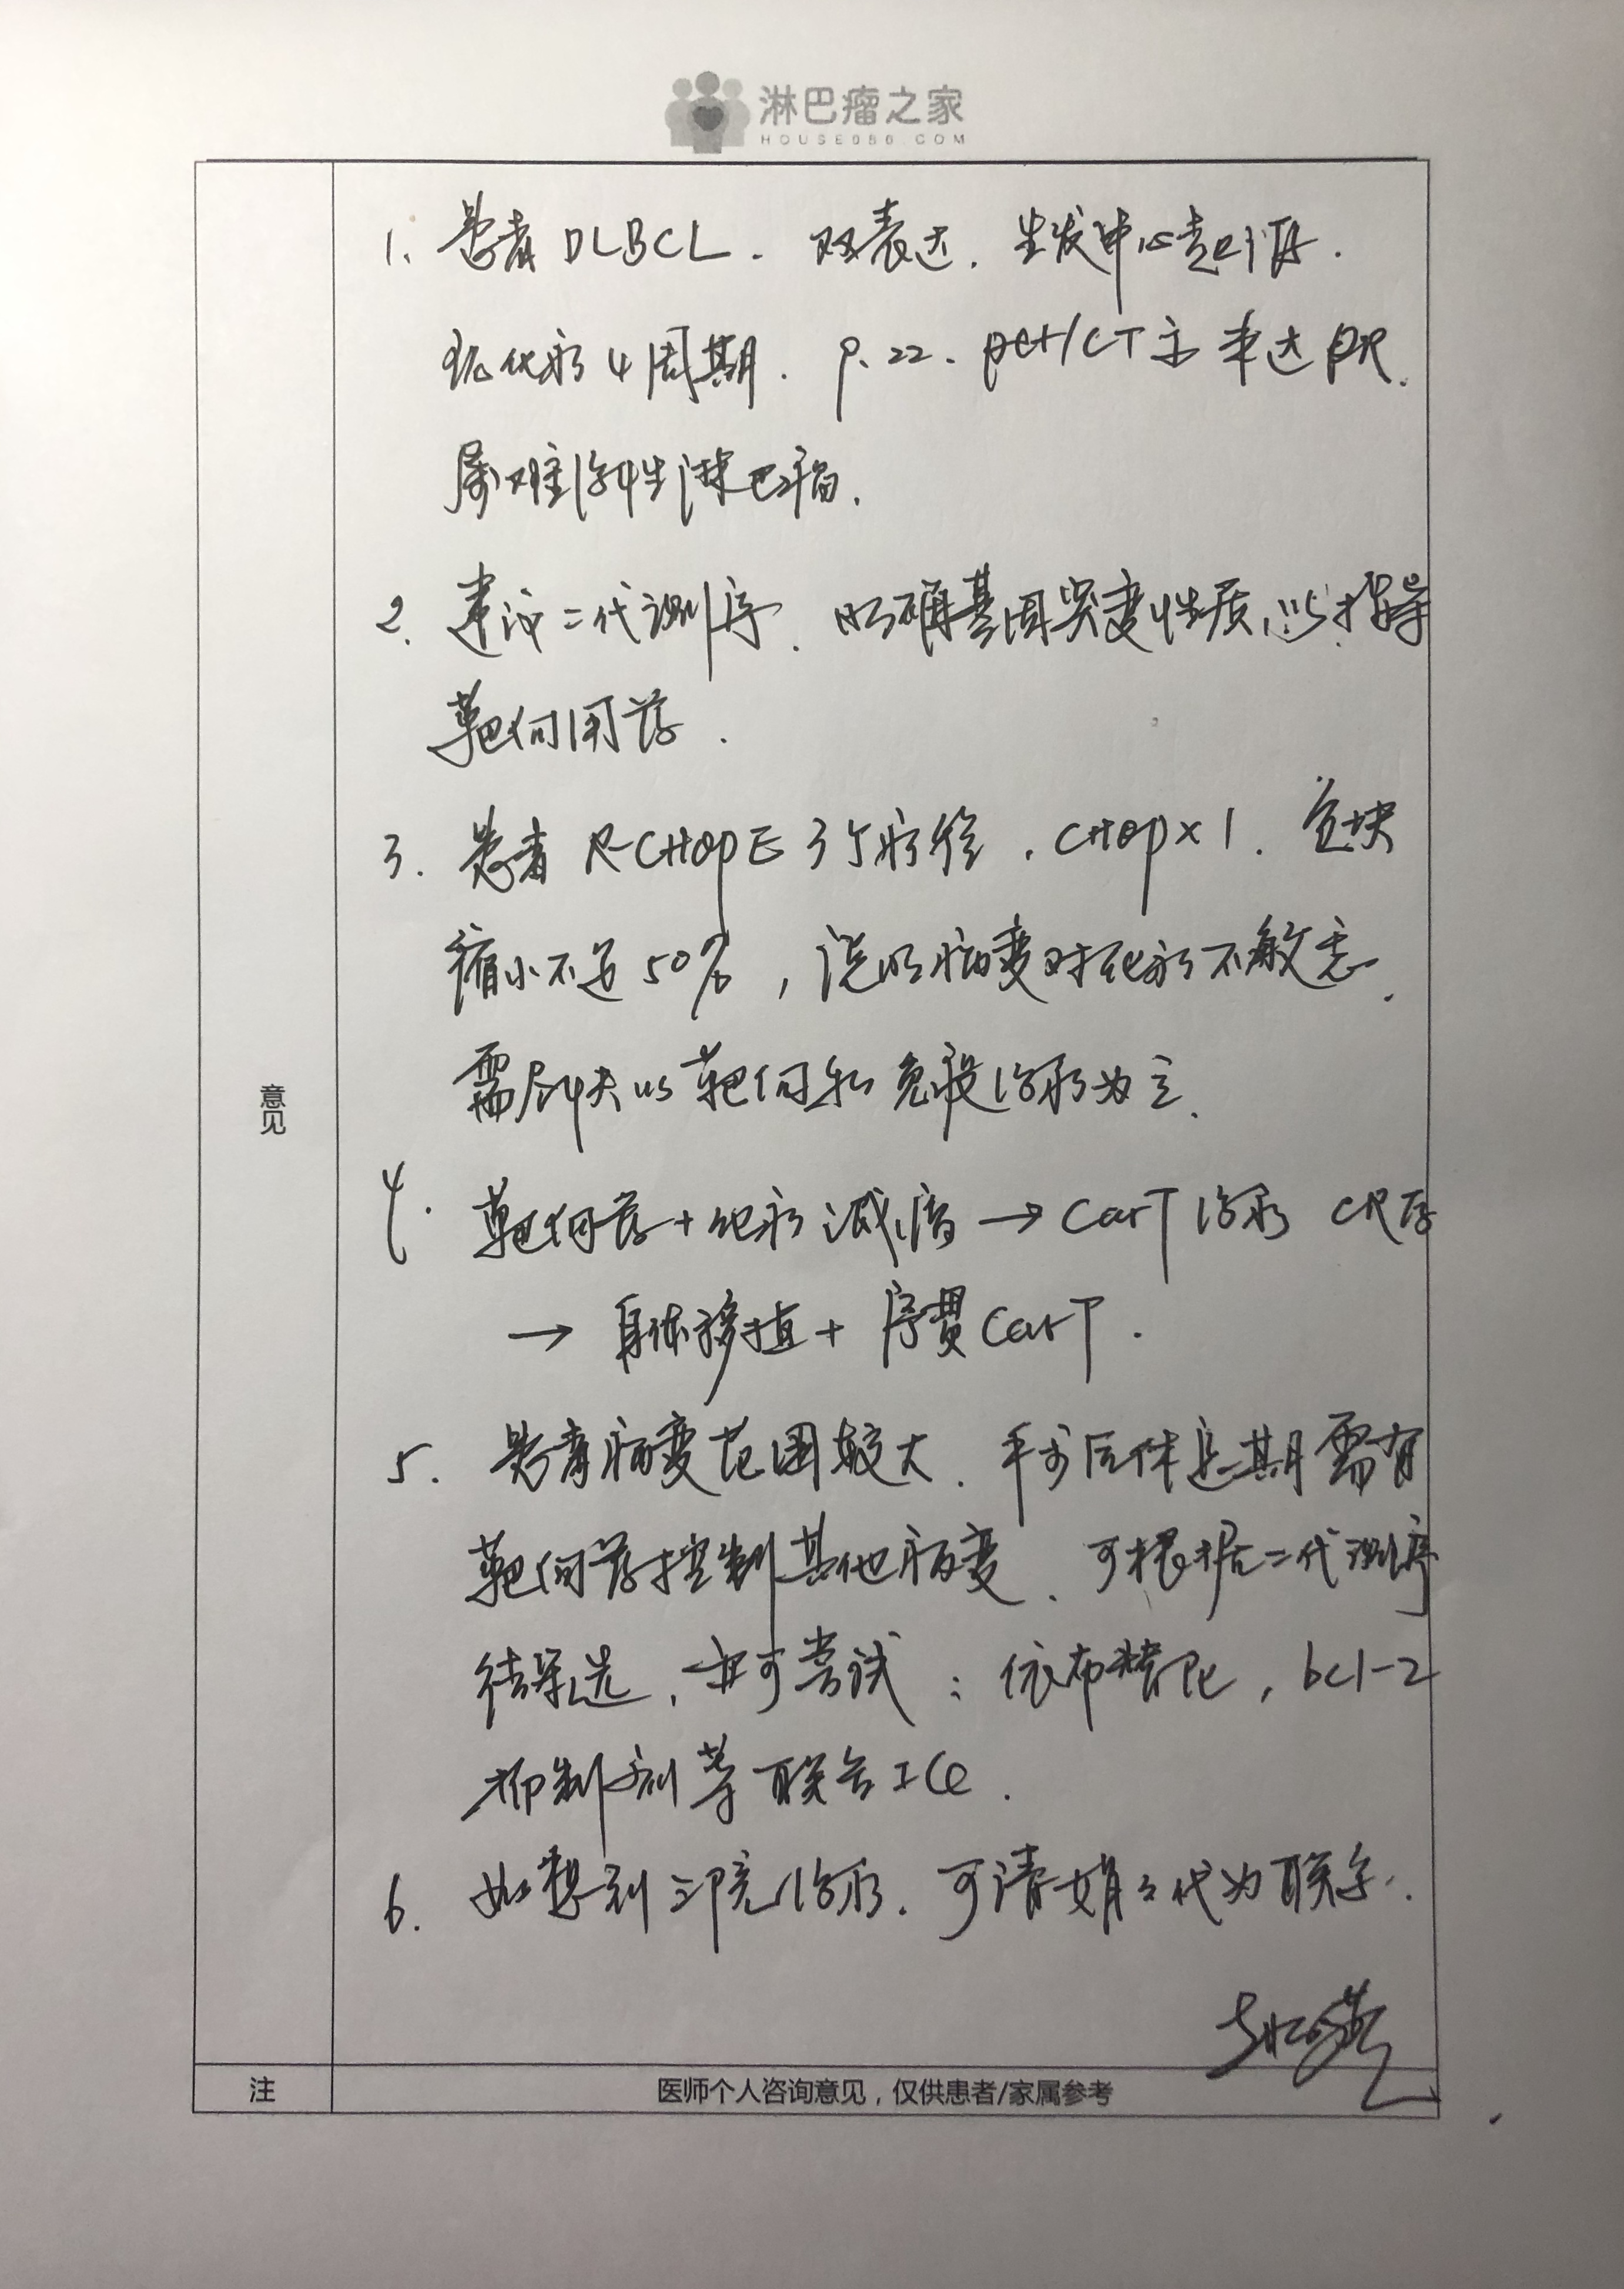 淋巴瘤之家
HOUSE086.COM
意见
1. 患者DLBCL. 双表达. 生发中心起源.
现化疗4周期. 9.22. PET/CT示未达PR.
属难治性淋巴瘤.
2. 建议二代测序. 明确基因突变性质,以指导
靶向用药.
3. 患者R-CHOPE 3个疗程. CHOP×1. 包块
缩小不足50%, 说明病变对化疗不敏感.
需尽快以靶向和免疫治疗为主.
4. 靶向药+化疗减瘤→CarT治疗 CR后
→自体移植+序贯CarT.
5. 患者病变范围较大. 手术后休息期需有
靶向药控制其他病变. 可根据二代测序
结果选, 亦可尝试: 依布替尼, bcl-2
抑制剂等联合ICE.
6. 如想到我院治疗. 可请娟子代为联系.
注
医师个人咨询意见，仅供患者/家属参考